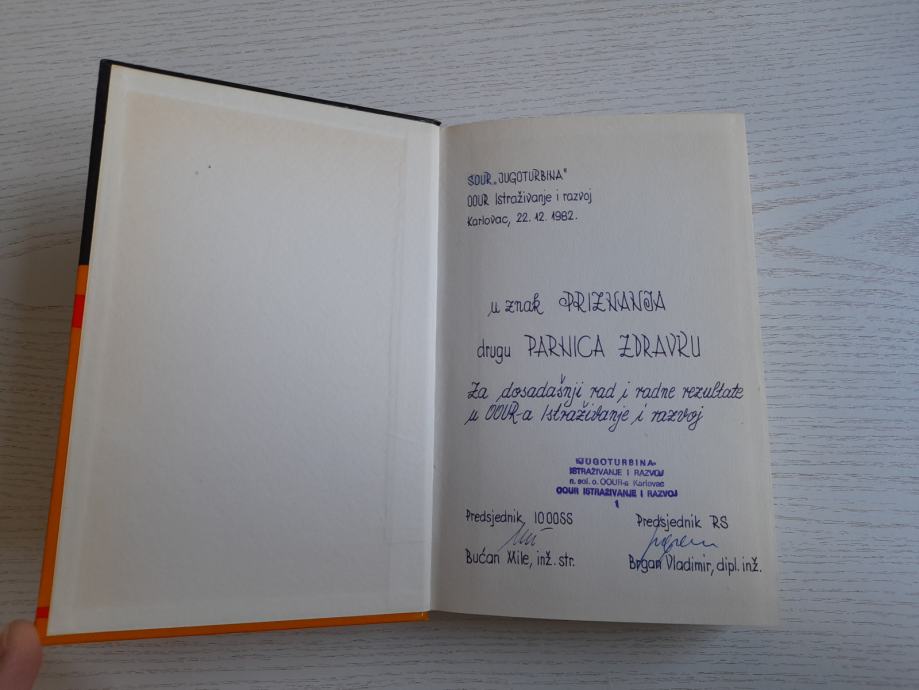 SOUR „JUGOTURBINA"
OOUR Istraživanje i razvoj
Karlovac, 22. 12. 1982.
u znak PRIZNANJA
drugu PARNICA ZDRAVKU
Za dosadašnji rad i radne rezultate
u OOUR-a Istraživanje i razvoj
»JUGOTURBINA«
ISTRAŽIVANJE I RAZVOJ
n. sol. o. OOUR-a Karlovac
OOUR ISTRAŽIVANJE I RAZVOJ
1
Predsjednik IOOOSS Predsjednik RS
Bućan Mile, inž. str. Brgan Vladimir, dipl. inž.